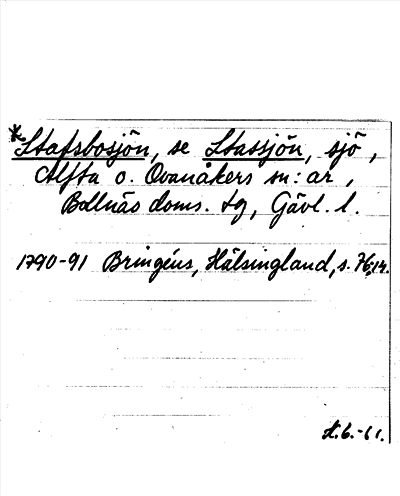 *Stafsbosjön, se Stassjön, sjö,
Alfta o. Ovanåkers sn:ar,
Bollnäs doms. tg, Gävl. l.
1790-91 Bringéus, Hälsingland, s. 76,14.
H.b.-61.